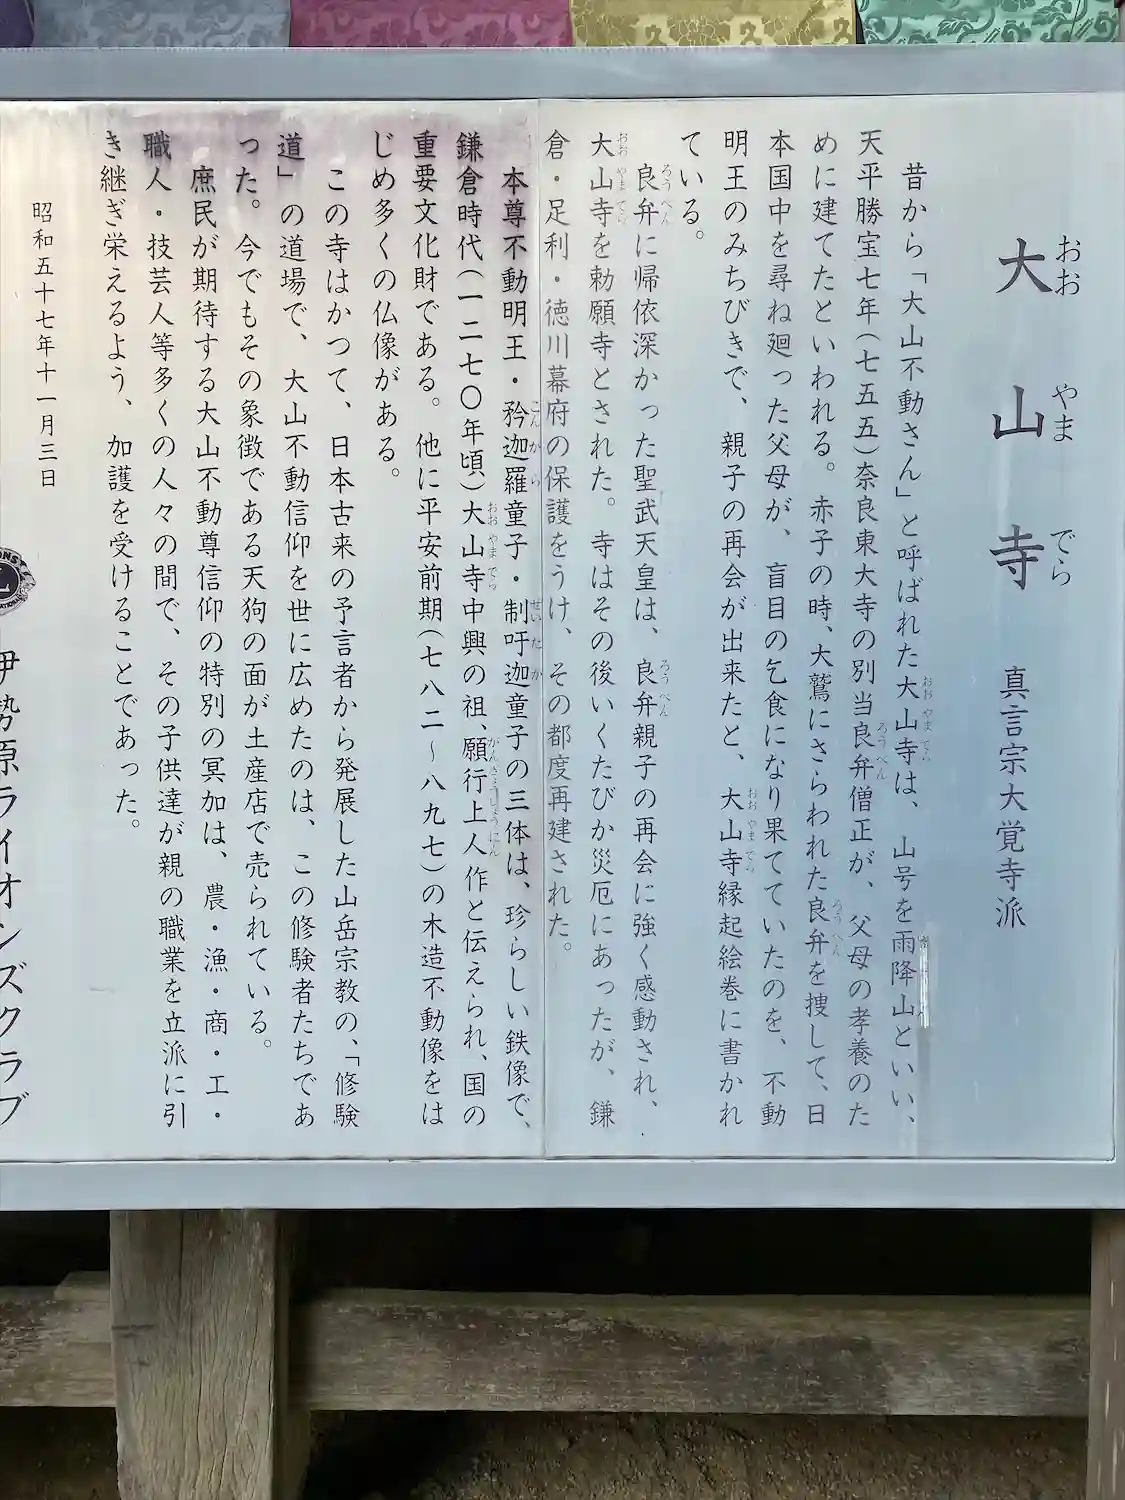 大山寺 真言宗大覚寺派
おお やま でら
昔から「大山不動さん」と呼ばれた大山寺は、山号を雨降山といい、
おおやまでら
天平勝宝七年(七五五)奈良東大寺の別当良弁僧正が、父母の孝養のた
ろうべん
めに建てたといわれる。赤子の時、大鷲にさらわれた良弁を捜して、日
ろうべん
本国中を尋ね廻った父母が、盲目の乞食になり果てていたのを、不動
明王のみちびきで、親子の再会が出来たと、大山寺縁起絵巻に書かれ
おおやまでら
ている。
良弁に帰依深かった聖武天皇は、良弁親子の再会に強く感動され、
ろうべん ろうべん
大山寺を勅願寺とされた。寺はその後いくたびか災厄にあったが、鎌
おおやまでら
倉・足利・徳川幕府の保護をうけ、その都度再建された。
本尊不動明王・矜迦羅童子・制吒迦童子の三体は、珍らしい鉄像で、
こんから せいたか
鎌倉時代(一二七〇年頃、)大山寺中興の祖、願行上人作と伝えられ、国の
おおやまでら がんぎょうしょうにん
重要文化財である。他に平安前期(七八二〜八九七)の木造不動像をは
じめ多くの仏像がある。
この寺はかつて、日本古来の予言者から発展した山岳宗教の、「修験
道」の道場で、大山不動信仰を世に広めたのは、この修験者たちであ
った。今でもその象徴である天狗の面が土産店で売られている。
庶民が期待する大山不動尊信仰の特別の冥加は、農・漁・商・工・
職人・技芸人等多くの人々の間で、その子供達が親の職業を立派に引
き継ぎ栄えるよう、加護を受けることであった。
昭和五十七年十一月三日
伊勢原ライオンズクラブ